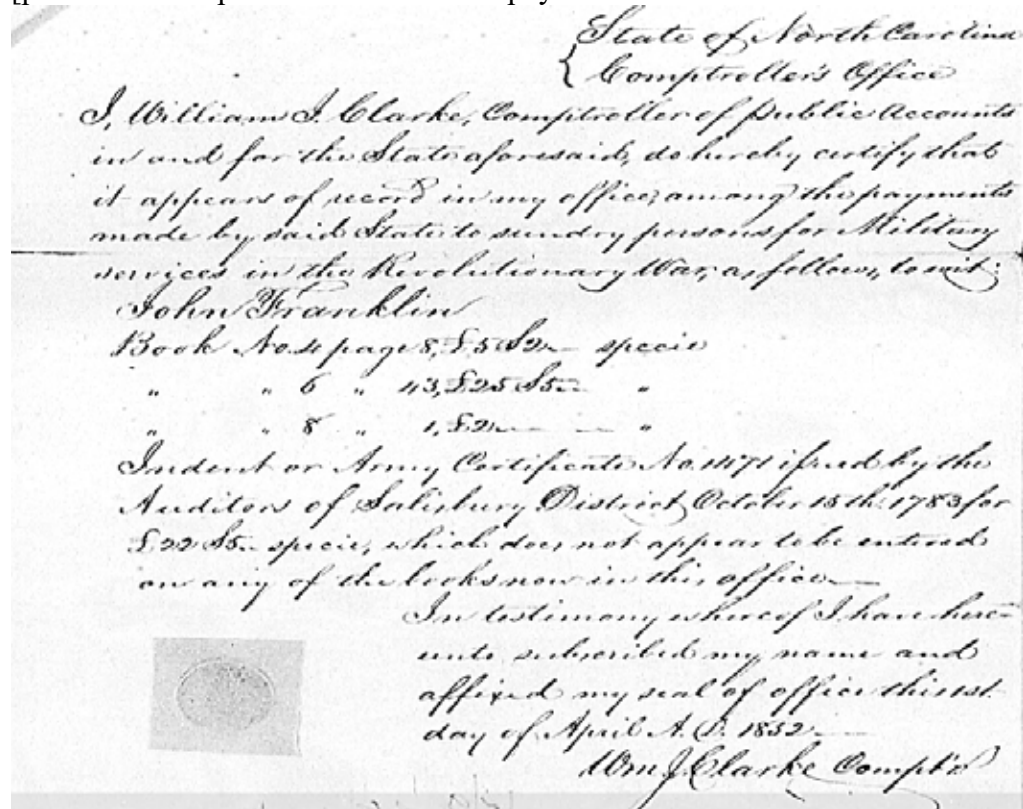 State of North Carolina
Comptroller's Office
I, William J. Clarke, Comptroller of Public Accounts
in and for the State aforesaid, do hereby certify that
it appears of record in my office, among the payments
made by said State to sundry persons for Military
services in the Revolutionary War, as follows, to wit:
John Franklin
Book No. 4 page 8, £5 S2 — specie
" " 6 " 43, £25 S5 — "
" " 8 " 1, £2 — — "
Indent or Army Certificate No. 1471 issued by the
Auditors of Salisbury District October 15th 1783 for
£22 S5 — specie, which does not appear to be entered
on any of the books now in this office —
In testimony whereof I have here-
unto subscribed my name and
affixed my seal of office this 1st
day of April A. D. 1852 —
Wm J. Clarke Compt'r